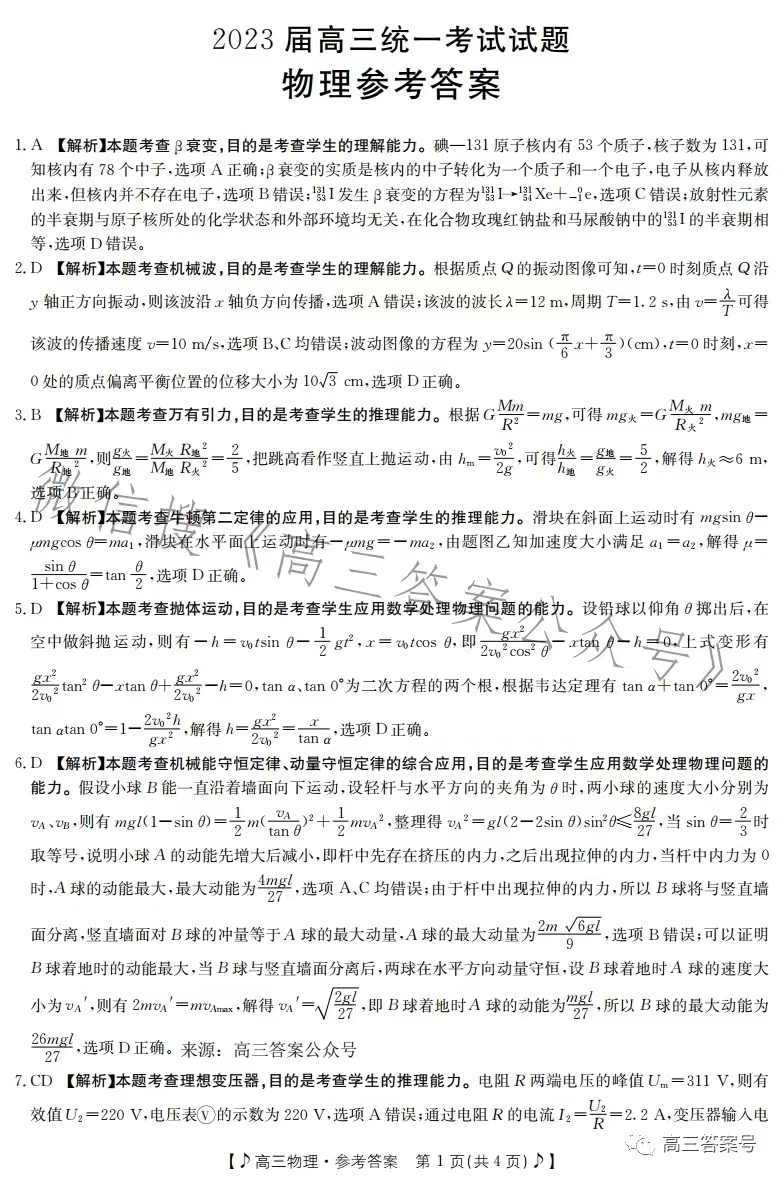 2023 届高三统一考试试题
物理参考答案
1. A 【解析】本题考查 β 衰变,目的是考查学生的理解能力。碘—131 原子核内有 53 个质子,核子数为 131,可
知核内有 78 个中子,选项 A 正确;β 衰变的实质是核内的中子转化为一个质子和一个电子,电子从核内释放
出来,但核内并不存在电子,选项 B 错误;¹³¹₅₃I 发生 β 衰变的方程为¹³¹₅₃I→¹³¹₅₄Xe+⁰₋₁e,选项 C 错误;放射性元素
的半衰期与原子核所处的化学状态和外部环境均无关,在化合物玫瑰红钠盐和马尿酸钠中的¹³¹₅₃I 的半衰期相
等,选项 D 错误。
2. D 【解析】本题考查机械波,目的是考查学生的理解能力。根据质点 Q 的振动图像可知,t=0 时刻质点 Q 沿
y 轴正方向振动,则该波沿 x 轴负方向传播,选项 A 错误;该波的波长 λ=12 m,周期 T=1.2 s,由 v=λ/T可得
该波的传播速度 v=10 m/s,选项 B、C 均错误;波动图像的方程为 y=20sin (π/6 x+π/3)(cm),t=0 时刻,x=
0 处的质点偏离平衡位置的位移大小为 10√3 cm,选项 D 正确。
3. B 【解析】本题考查万有引力,目的是考查学生的推理能力。根据 G Mm/R²=mg,可得 mg火=G M火 m/R火²,mg地=
G M地 m/R地²,则 g火/g地=M火 R地²/M地 R火²=2/5,把跳高看作竖直上抛运动,由 hm=v₀²/2g,可得 h火/h地=g地/g火=5/2,解得 h火≈6 m,
选项 B 正确。
4. D 【解析】本题考查牛顿第二定律的应用,目的是考查学生的推理能力。滑块在斜面上运动时有 mgsin θ−
μmgcos θ=ma₁,滑块在水平面上运动时有−μmg=−ma₂,由题图乙知加速度大小满足 a₁=a₂,解得 μ=
sin θ/(1+cos θ)=tan θ/2,选项 D 正确。
5. D 【解析】本题考查抛体运动,目的是考查学生应用数学处理物理问题的能力。设铅球以仰角 θ 掷出后,在
空中做斜抛运动,则有−h=v₀tsin θ−1/2 gt²,x=v₀tcos θ,即 gx²/(2v₀²cos² θ)−xtan θ−h=0,上式变形有
gx²/2v₀² tan² θ−xtan θ+gx²/2v₀²−h=0,tan α、tan 0°为二次方程的两个根,根据韦达定理有 tan α+tan 0°=2v₀²/gx,
tan αtan 0°=1−2v₀²h/gx²,解得 h=gx²/2v₀²=x/tan α,选项 D 正确。
6. D 【解析】本题考查机械能守恒定律、动量守恒定律的综合应用,目的是考查学生应用数学处理物理问题的
能力。假设小球 B 能一直沿着墙面向下运动,设轻杆与水平方向的夹角为 θ 时,两小球的速度大小分别为
vA、vB,则有 mgl(1−sin θ)=1/2 m(vA/tan θ)²+1/2 mvA²,整理得 vA²=gl(2−2sin θ)sin²θ≤8gl/27,当 sin θ=2/3时
取等号,说明小球 A 的动能先增大后减小,即杆中先存在挤压的内力,之后出现拉伸的内力,当杆中内力为 0
时,A 球的动能最大,最大动能为4mgl/27,选项 A、C 均错误;由于杆中出现拉伸的内力,所以 B 球将与竖直墙
面分离,竖直墙面对 B 球的冲量等于 A 球的最大动量,A 球的最大动量为2m √6gl/9,选项 B 错误;可以证明
B 球着地时的动能最大,当 B 球与竖直墙面分离后,两球在水平方向动量守恒,设 B 球着地时 A 球的速度大
小为 vA′,则有 2mvA′=mvAmax,解得 vA′=√(2gl/27),即 B 球着地时 A 球的动能为mgl/27,所以 B 球的最大动能为
26mgl/27,选项 D 正确。来源:高三答案公众号
7. CD 【解析】本题考查理想变压器,目的是考查学生的推理能力。电阻 R 两端电压的峰值 Um=311 V,则有
效值 U₂=220 V,电压表Ⓥ的示数为 220 V,选项 A 错误;通过电阻 R 的电流 I₂=U₂/R=2.2 A,变压器输入电
【♪高三物理·参考答案 第 1 页(共 4 页)♪】
微信搜《高三答案公众号》
高三答案号